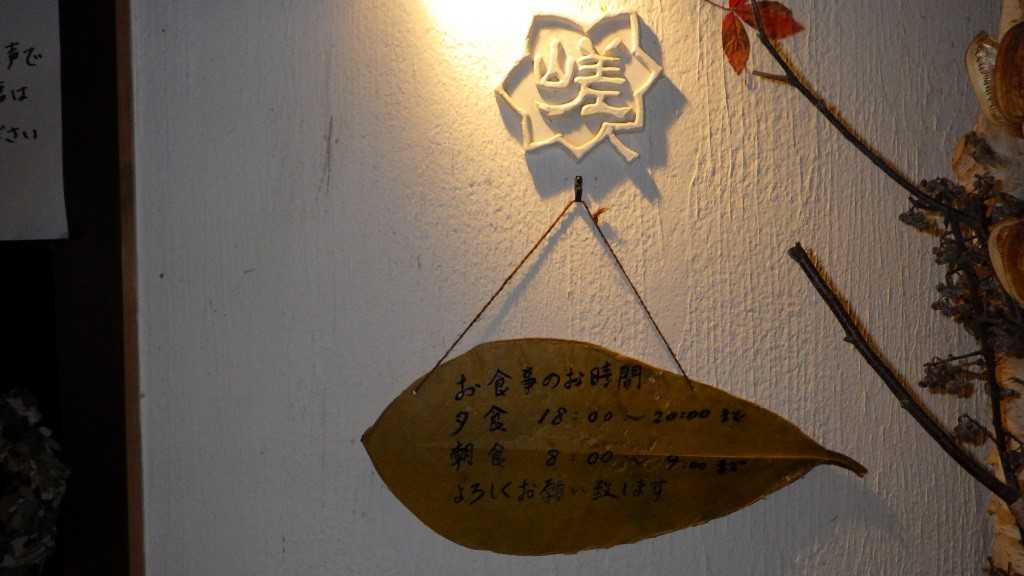 声で
は
ださい
お食事のお時間
夕食 18:00～20:00まで
朝食 8:00～9:00まで
よろしくお願い致します